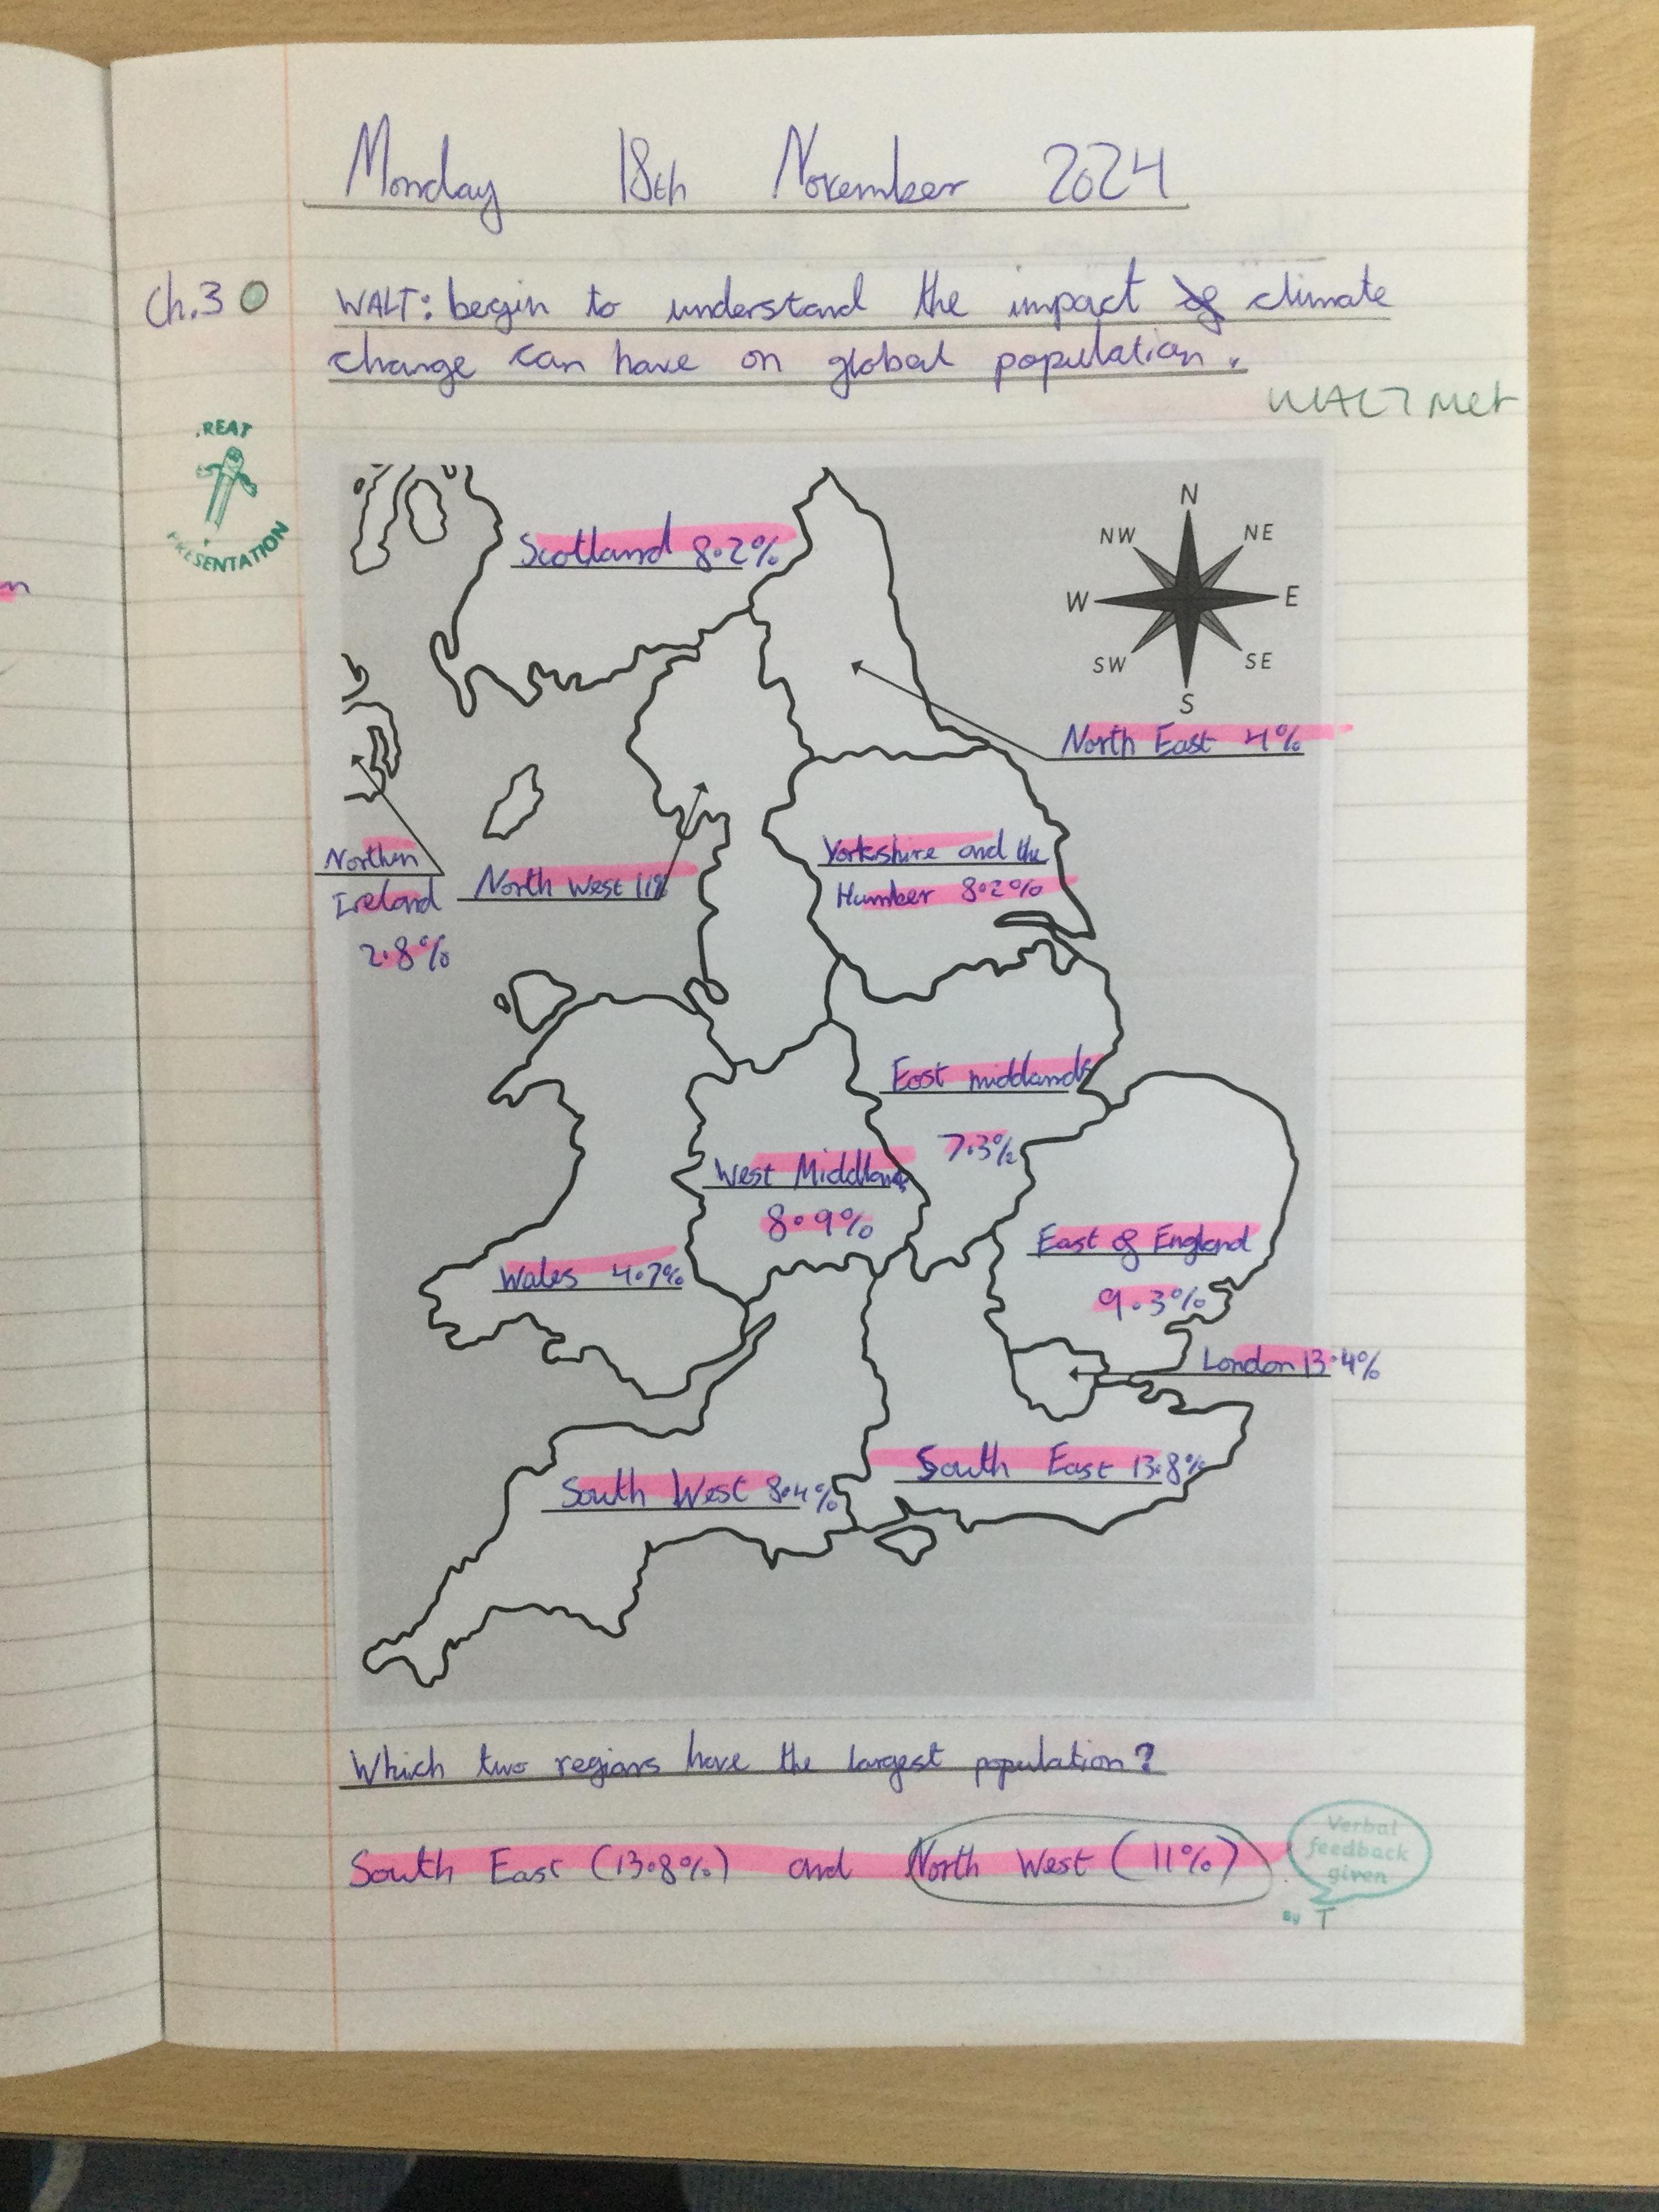 Monday 18th November 2024
Ch.3 WALT: begin to understand the impact climate
change can have on global population.
WALT met
.REAT
PRESENTATION
Scotland 8.2%
N
NW NE
W E
SW SE
S
North East 4%
Northen
Ireland
2.8%
North West 11%
Yorkshire and the
Humber 8.2%
East middlands
7.3%
West Middlands
8.9%
East of England
9.3%
Wales 4.7%
London 13.4%
South East 13.8%
South West 8.4%
Which two regions have the largest population?
South East (13.8%) and North West (11%)
Verbal
feedback
given
By T